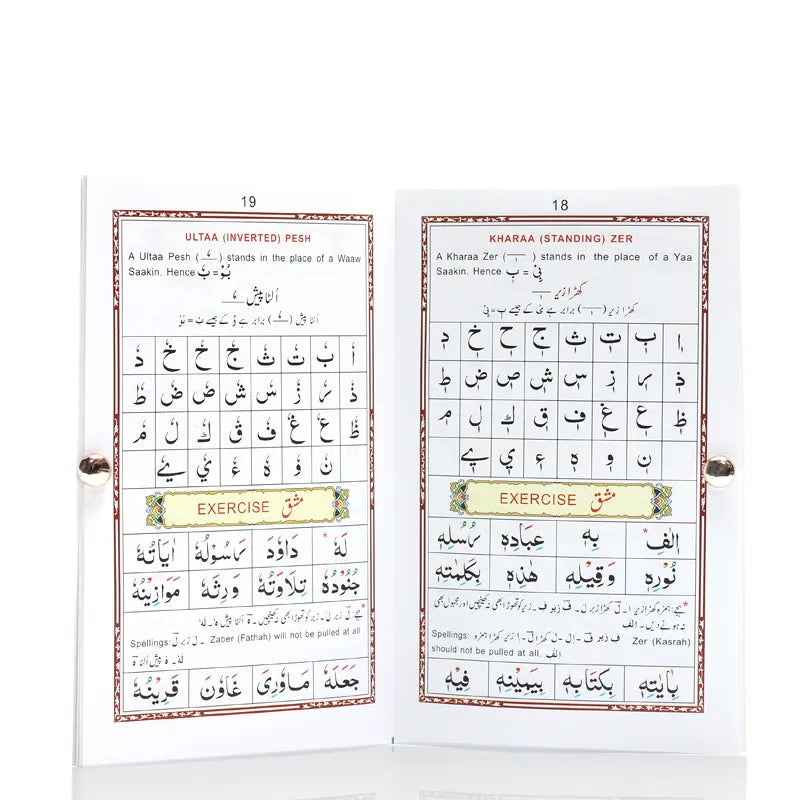 18
KHARAA (STANDING) ZER
A Kharaa Zer ( ٖ ) stands in the place of a Yaa
Saakin. Hence بٖ = بِیْ
کھڑا زیر ٖ
کھڑا زیر ( ٖ ) برابر ہے یْ کے جیسے بٖ = بِیْ
اٖ بٖ تٖ ثٖ جٖ حٖ خٖ دٖ
ذٖ رٖ زٖ سٖ شٖ صٖ ضٖ طٖ
ظٖ عٖ غٖ فٖ قٖ كٖ لٖ مٖ
نٖ وٖ هٖ ءٖ يٖ ےٖ
EXERCISE مشق
*اٖلٰفِ بِهٖ عِبَادِهٖ رُسُلِهٖ
نُوْرِهٖ وَقِيْلِهٖ هٰذِهٖ بِكَلِمٰتِهٖ
Spellings: Zer (Kasrah)
should not be pulled at all.
بِاٰيٰتِهٖ بِكِتَابِهٖ بِيَمِيْنِهٖ فِيْهِ
19
ULTAA (INVERTED) PESH
A Ultaa Pesh ( ٗ ) stands in the place of a Waaw
Saakin. Hence بٗ = بُوْ
اُلٹا پیش ٗ
اُلٹا پیش ( ٗ ) برابر ہے وْ کے جیسے بٗ = بُوْ
اٗ بٗ تٗ ثٗ جٗ حٗ خٗ دٗ
ذٗ رٗ زٗ سٗ شٗ صٗ ضٗ طٗ
ظٗ عٗ غٗ فٗ قٗ كٗ لٗ مٗ
نٗ وٗ هٗ ءٗ يٗ ےٗ
EXERCISE مشق
*لَهٗ دَاوٗدَ رَسُوْلُهٗ اٰيَاتُهٗ
جُنُوْدُهٗ تِلَاوَتُهٗ وَرِثَهٗ مَوَازِيْنُهٗ
Spellings: Zaber (Fathah) will not be pulled at all.
جَعَلَهٗ مَاوٗرِىَ غَاوٗنَ قَرِيْنُهٗ